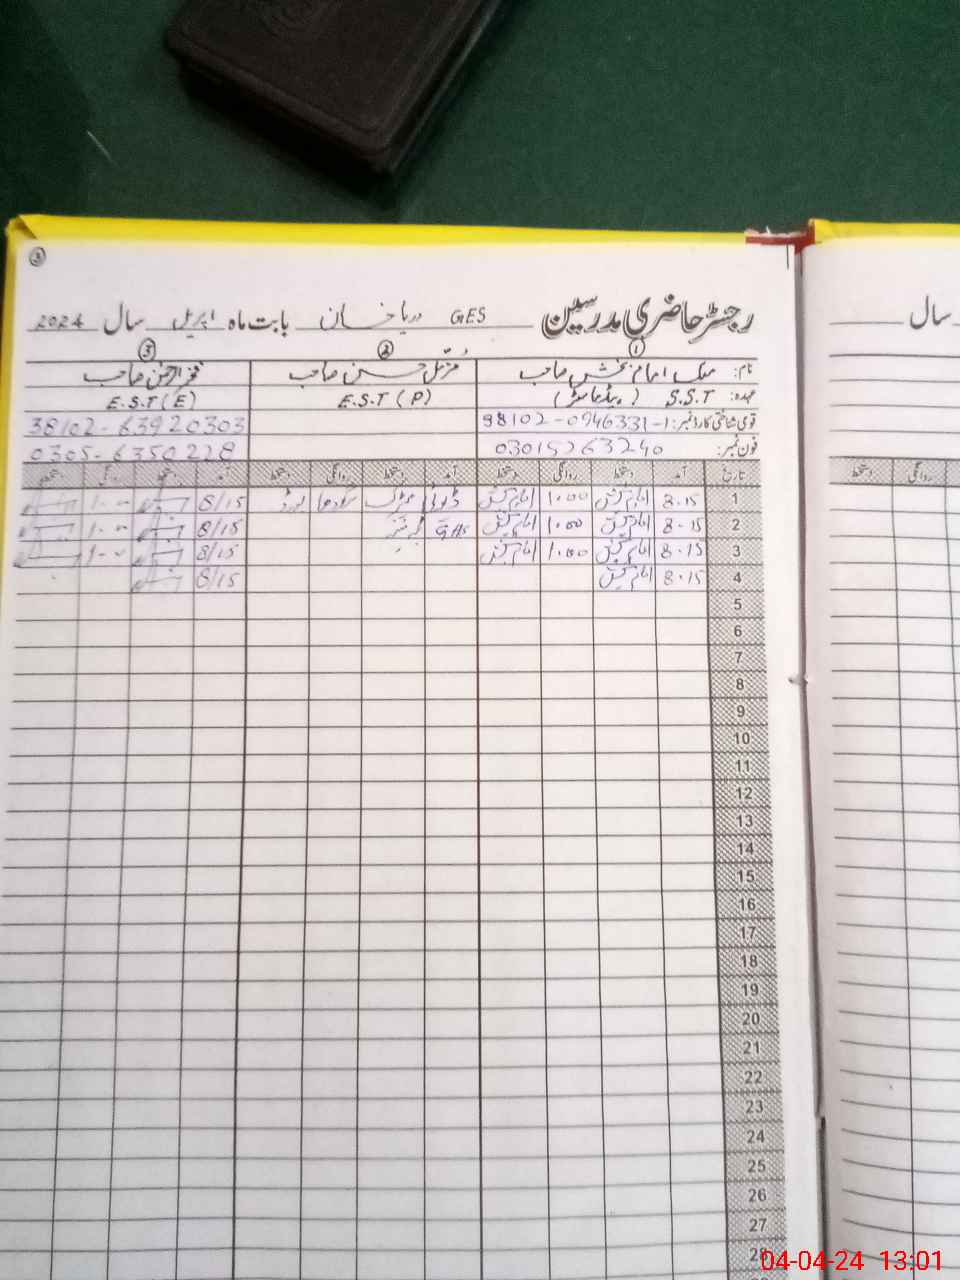 3
رجسٹر حاضری مدرسین GES دریا خان بابت ماہ اپریل سال 2024
1 2 3
نام: ملک امام بخش صاحب مزمل حسین صاحب فخر الرحمٰن صاحب
عہدہ: S.S.T (ہیڈ ماسٹر) E.S.T (P) E.S.T (E)
قومی شناختی کارڈ نمبر: 98102-0946331-1 38102-63920303
فون نمبر: 03015263240 0305-6350228
تاریخ آمد دستخط روانگی دستخط آمد دستخط روانگی دستخط آمد دستخط روانگی دستخط
1 8.15 امام بخش 1.00 امام بخش ڈیوٹی میٹرک سرگودھا بورڈ 8/15 1-00
2 8-15 امام بخش 1.00 امام بخش GHS 8/15 1-00
3 8.15 امام بخش 1.00 امام بخش 8/15 1-00
4 8.15 امام بخش 8/15
5
6
7
8
9
10
11
12
13
14
15
16
17
18
19
20
21
22
23
24
25
26
27
28
سال
دستخط روانگی
04-04-24 13:01